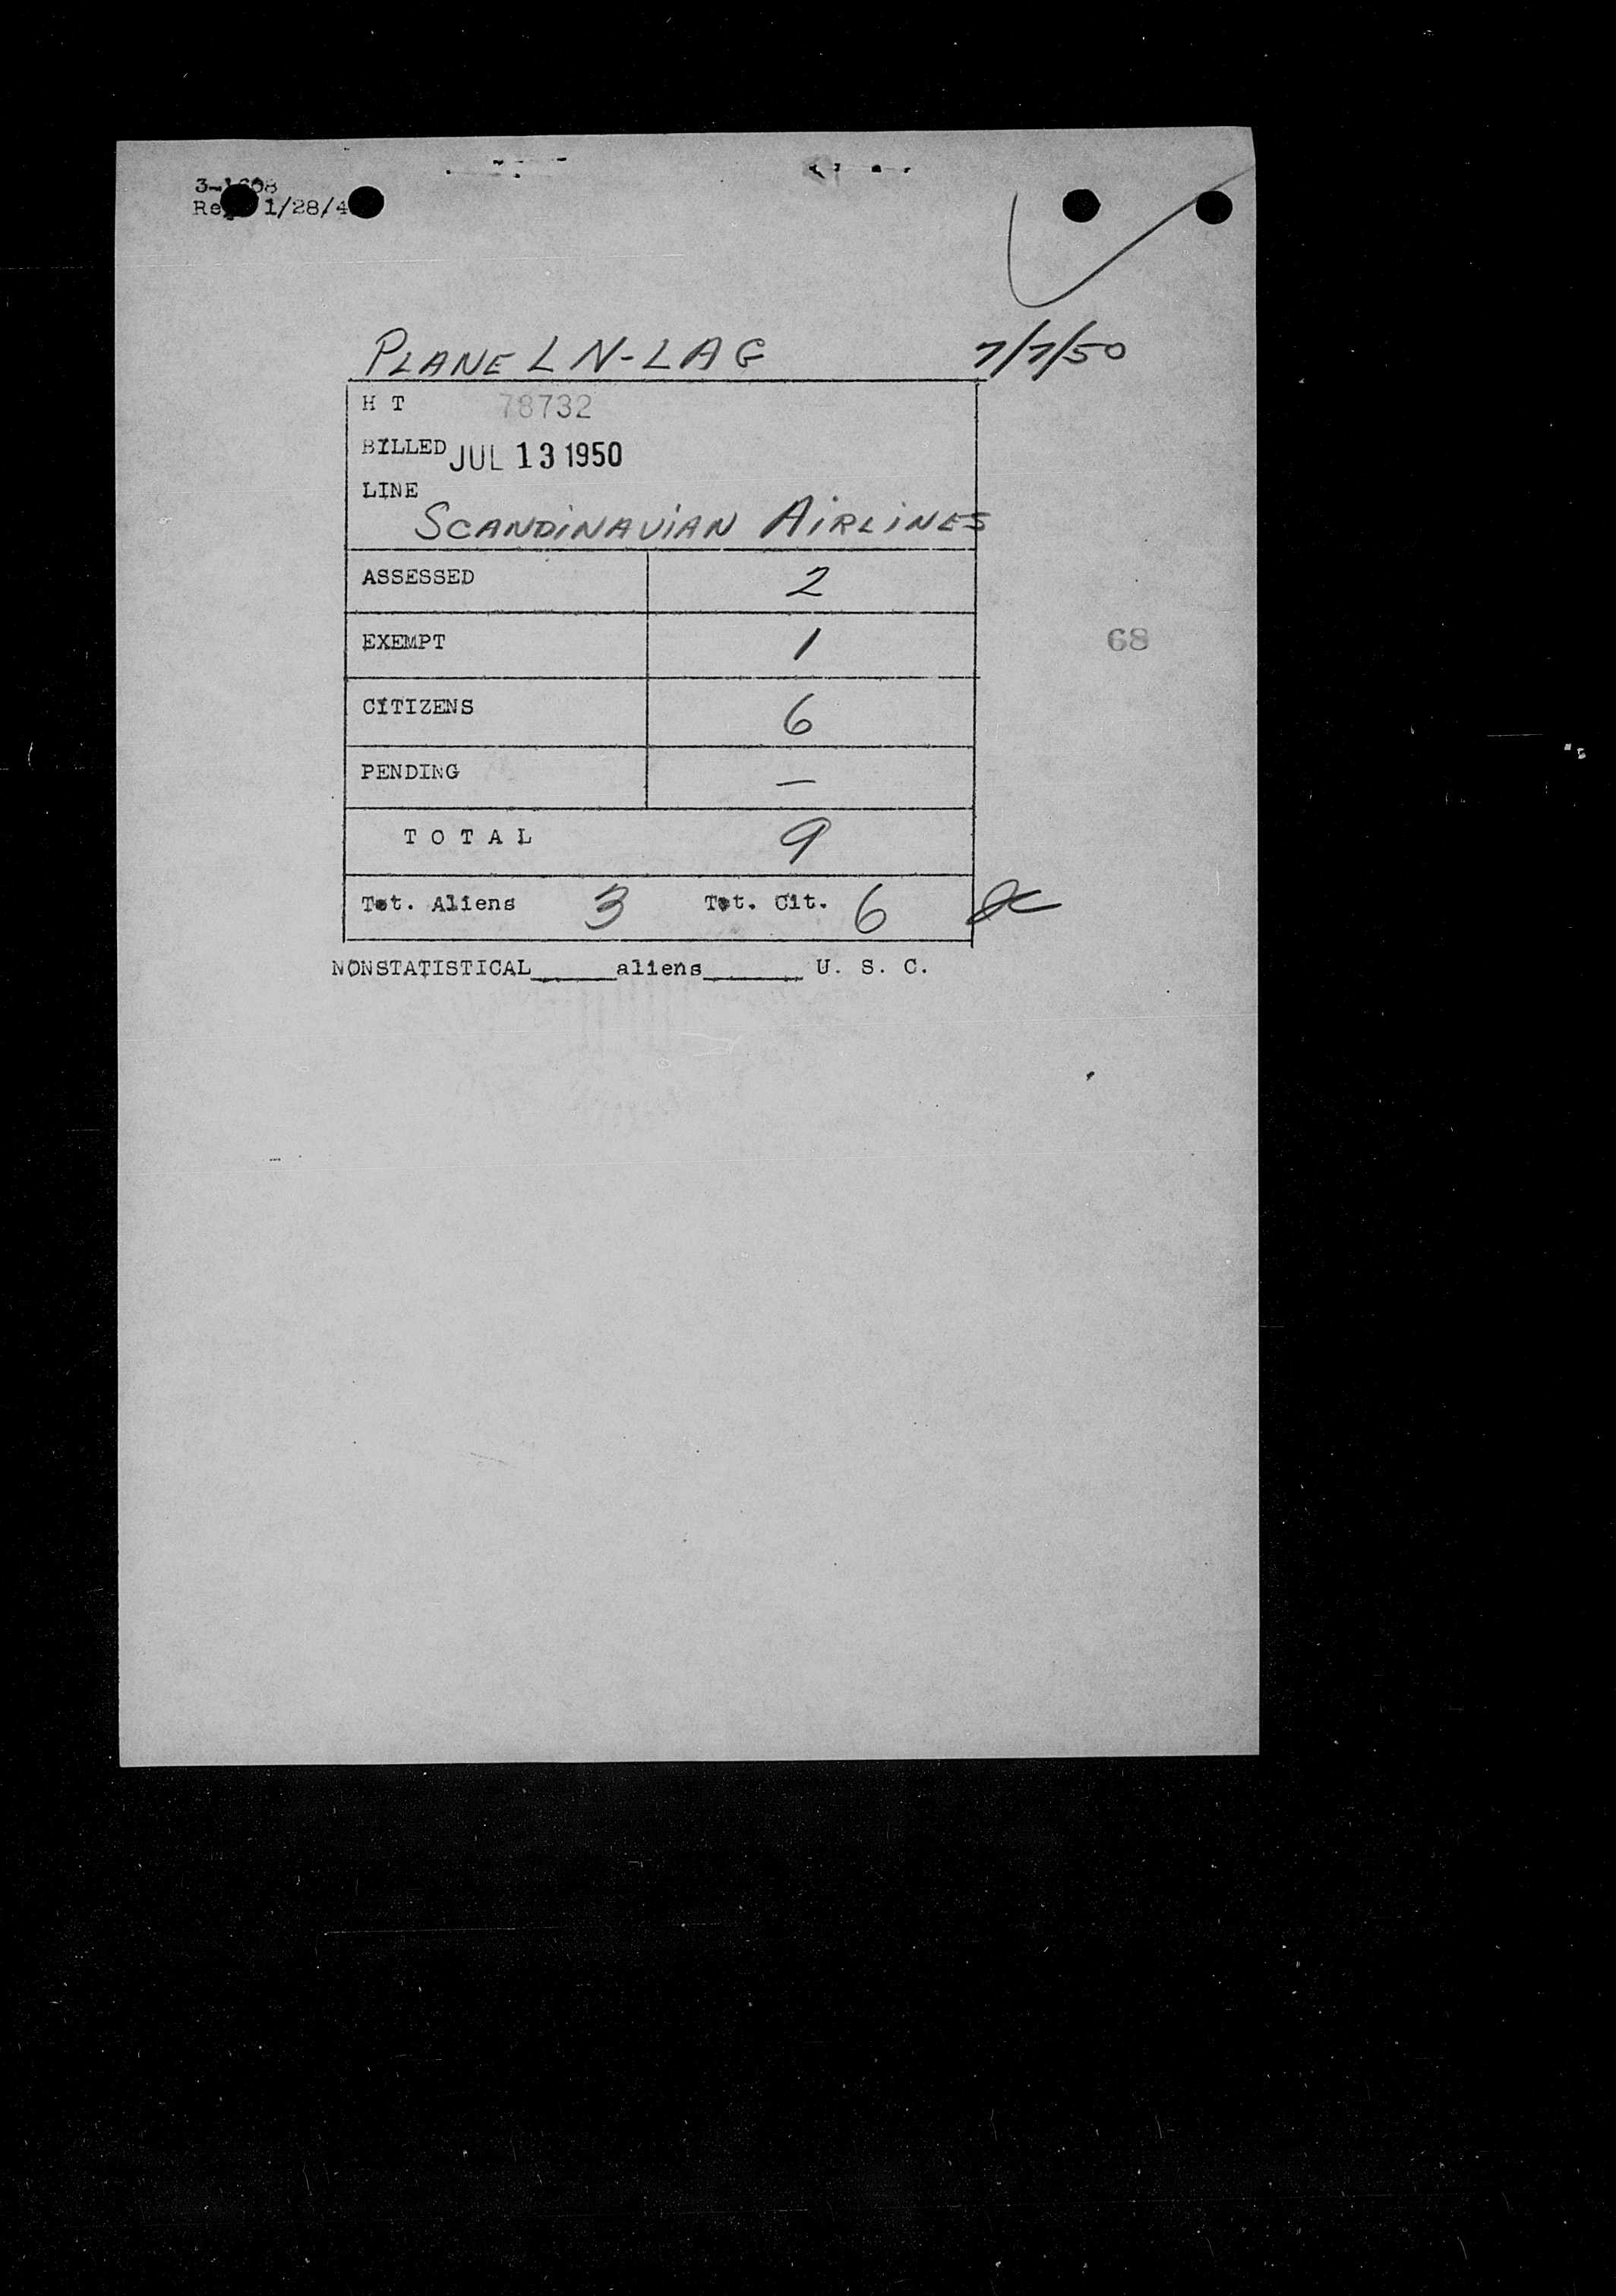 3-1608
Rev. 1/28/4
PLANE LN-LAG 7/7/50
H T 78732
BILLED JUL 13 1950
LINE
SCANDINAVIAN AIRLINES
ASSESSED 2
EXEMPT 1
68
CITIZENS 6
PENDING —
T O T A L 9
Tot. Aliens 3 Tot. Cit. 6
NONSTATISTICAL______aliens_______ U. S. C.